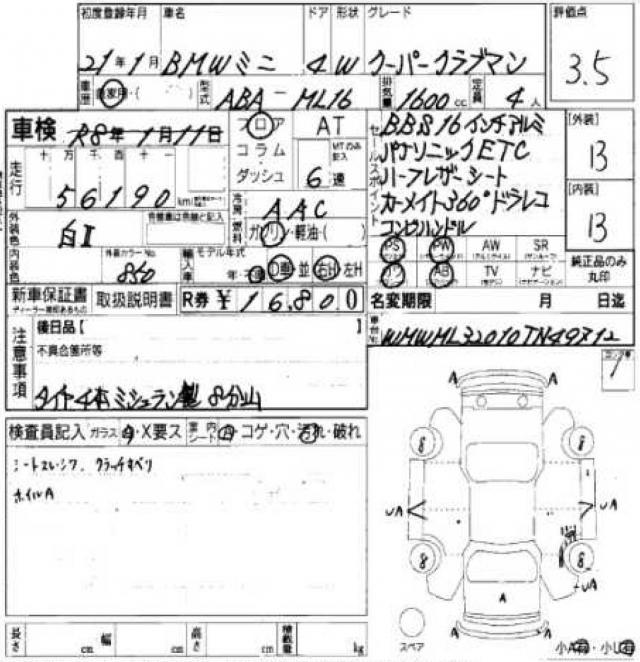 初度登録年月 車名 ドア 形状 グレード 評価点
21年1月 BMWミニ 4 W クーパークラブマン 3.5
車歴 自家用・( ) 型式 ABA-ML16 排気量 1600cc 定員 4人
車検 R8年1月11日 フロア AT セールスポイント BBS16インチアルミ [外装]
走行 十万千百十一 コラム MTのみ記入 パナソニックETC B
56190 km ダッシュ 6速 ハーフレザーシート
外装色 白II 冷房 AAC カーメイト360°ドラレコ [内装]
燃料 ガソリン・軽油・( ) コンビハンドル B
内装色 外装カラーNo. 850 輸入車 モデル年式 年・不明 D車 並 右H 左H
PS PW AW SR
AB TV ナビ 純正品のみ丸印
新車保証書 取扱説明書 R券 ¥16,800 名変期限 月 日迄
注意事項 後日品【 】 車台No. WMWML32010TN49712
不具合箇所等
タイヤ4本ミシュラン製 8分山
検査員記入 ガラス A・X要ス 車内シート コゲ・穴・汚れ・破れ
シートスレ・シワ クラッチすべり
ホイルA
A A
8 8
UA UA
8 8
UA
A
A A
スペア
長さ cm 幅 cm 高さ cm 積載量 kg 小A有・小U有